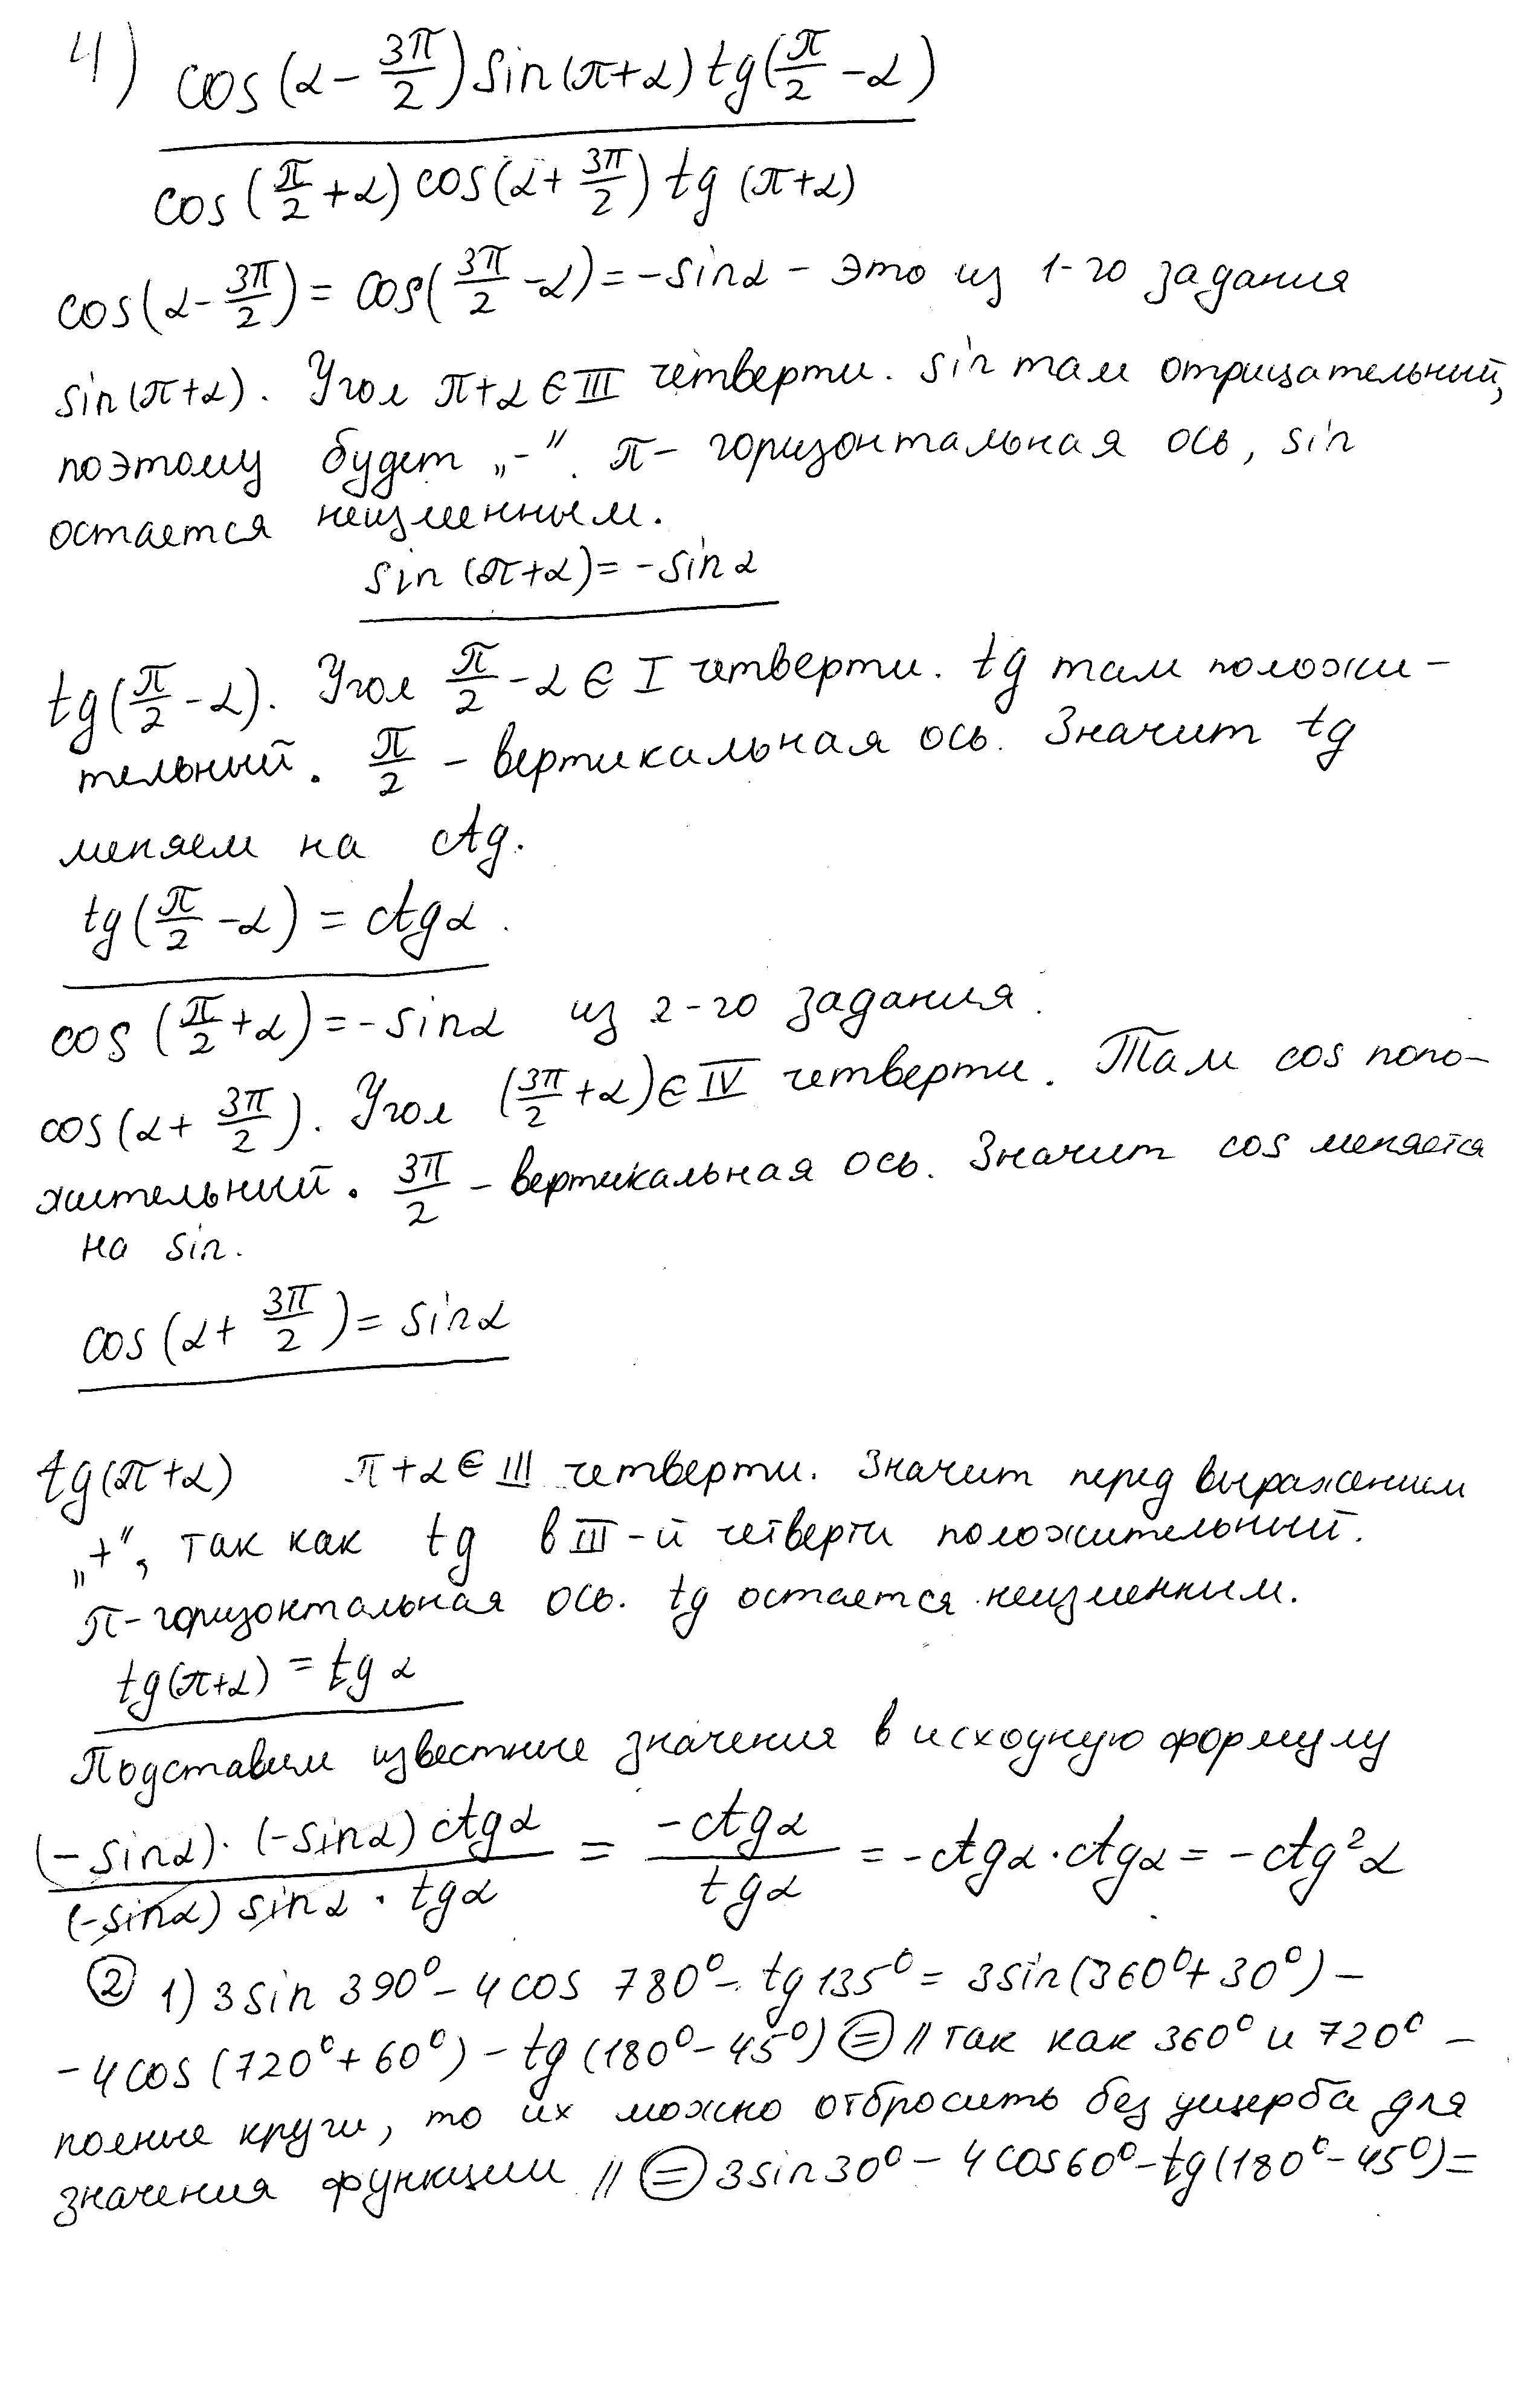 4) cos(α - 3π/2) sin(π+α) tg(π/2 - α)
cos(π/2 + α) cos(α + 3π/2) tg (π+α)
cos(α - 3π/2) = cos(3π/2 - α) = -sinα - это из 1-го задания
sin(π+α). Угол π+α ∈ III четверти. sin там отрицательный,
поэтому будет „-“. π - горизонтальная ось, sin
остается неизменным.
sin (π+α) = -sin α
tg(π/2 - α). Угол π/2 - α ∈ I четверти. tg там положи-
тельный. π/2 - вертикальная ось. Значит tg
меняем на ctg.
tg(π/2 - α) = ctgα.
cos (π/2 + α) = -sinα из 2-го задания.
cos(α + 3π/2). Угол (3π/2 + α) ∈ IV четверти. Там cos поло-
жительный. 3π/2 - вертикальная ось. Значит cos меняется
на sin.
cos(α + 3π/2) = sinα
tg(π+α) π+α ∈ III четверти. Значит перед выражением
„+“, так как tg в III-й четверти положительный.
π-горизонтальная ось. tg остается неизменным.
tg(π+α) = tg α
Подставим известные значения в исходную формулу
(-sinα)·(-sinα) ctgα / (-sinα) sinα · tgα = -ctgα / tgα = -ctgα·ctgα = -ctg²α
② 1) 3sin 390° - 4cos 780° - tg 135° = 3sin(360°+30°) -
- 4cos(720°+60°) - tg(180°-45°) = // так как 360° и 720° -
полные круги, то их можно отбросить без ущерба для
значения функции // = 3sin30° - 4cos60° - tg(180°-45°) =